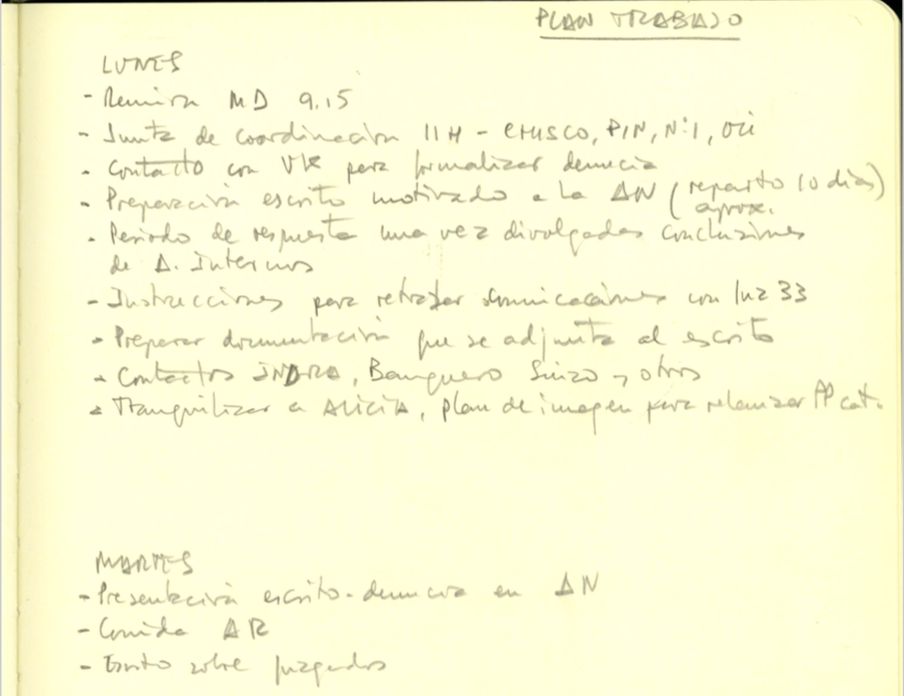 PLAN TRABAJO
LUNES
- Reunión MD 9.15
- Junta de coordinación IIH - CHISCO, PIN, Nº1, Oli
- Contacto con VK para formalizar denuncia
- Preparación escrito motivado a la AN (reparto 10 días)
aprox.
- Periodo de respuesta una vez divulgadas conclusiones
de A. Internos
- Instrucciones para retrasar comunicaciones con Inz 33
- Preparar documentación que se adjunta al escrito
- Contactos INDRA, Banquero Suizo y otros
- Tranquilizar a ALICIA, plan de imagen para relanzar PP cat.
MARTES
- Presentación escrito-denuncia en AN
- Comida AR
- Escrito sobre juzgados